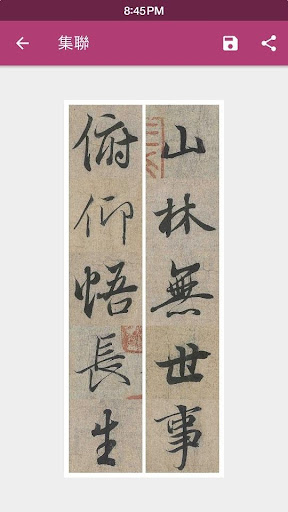 8:45PM
集聯
山林無世事
俯仰悟長生